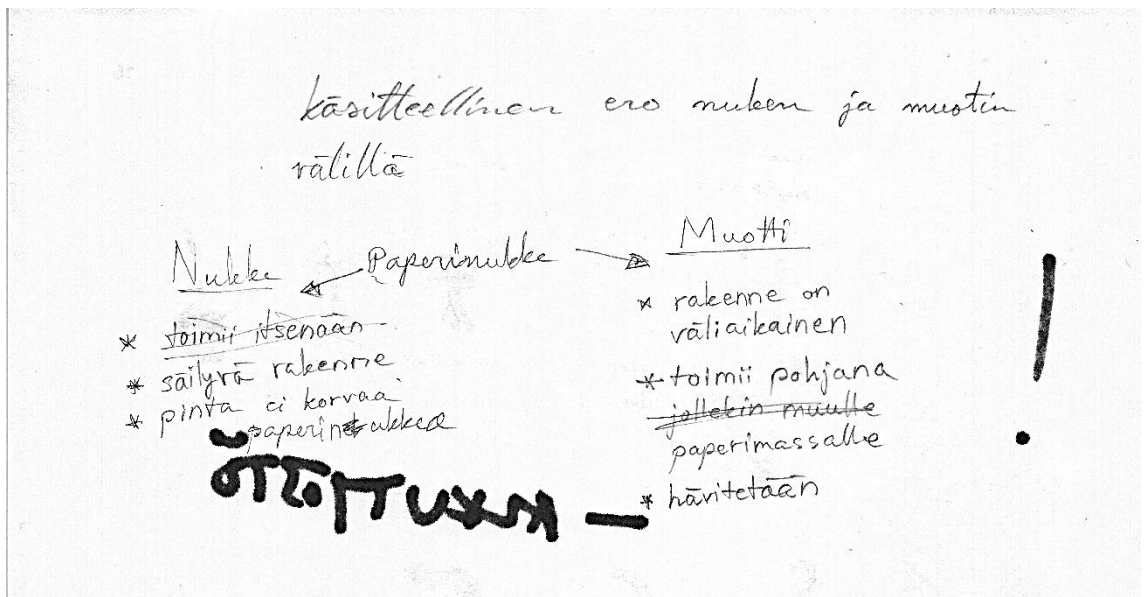 käsitteellinen ero nuken ja muotin
välillä
Paperinukke
Nukke
* toimii itsenään
* säilyvä rakenne
* pinta ei korvaa
paperinukkea
Muotti
* rakenne on
väliaikainen
* toimii pohjana
jollekin muulle
paperimassalle
* hävitetään
!